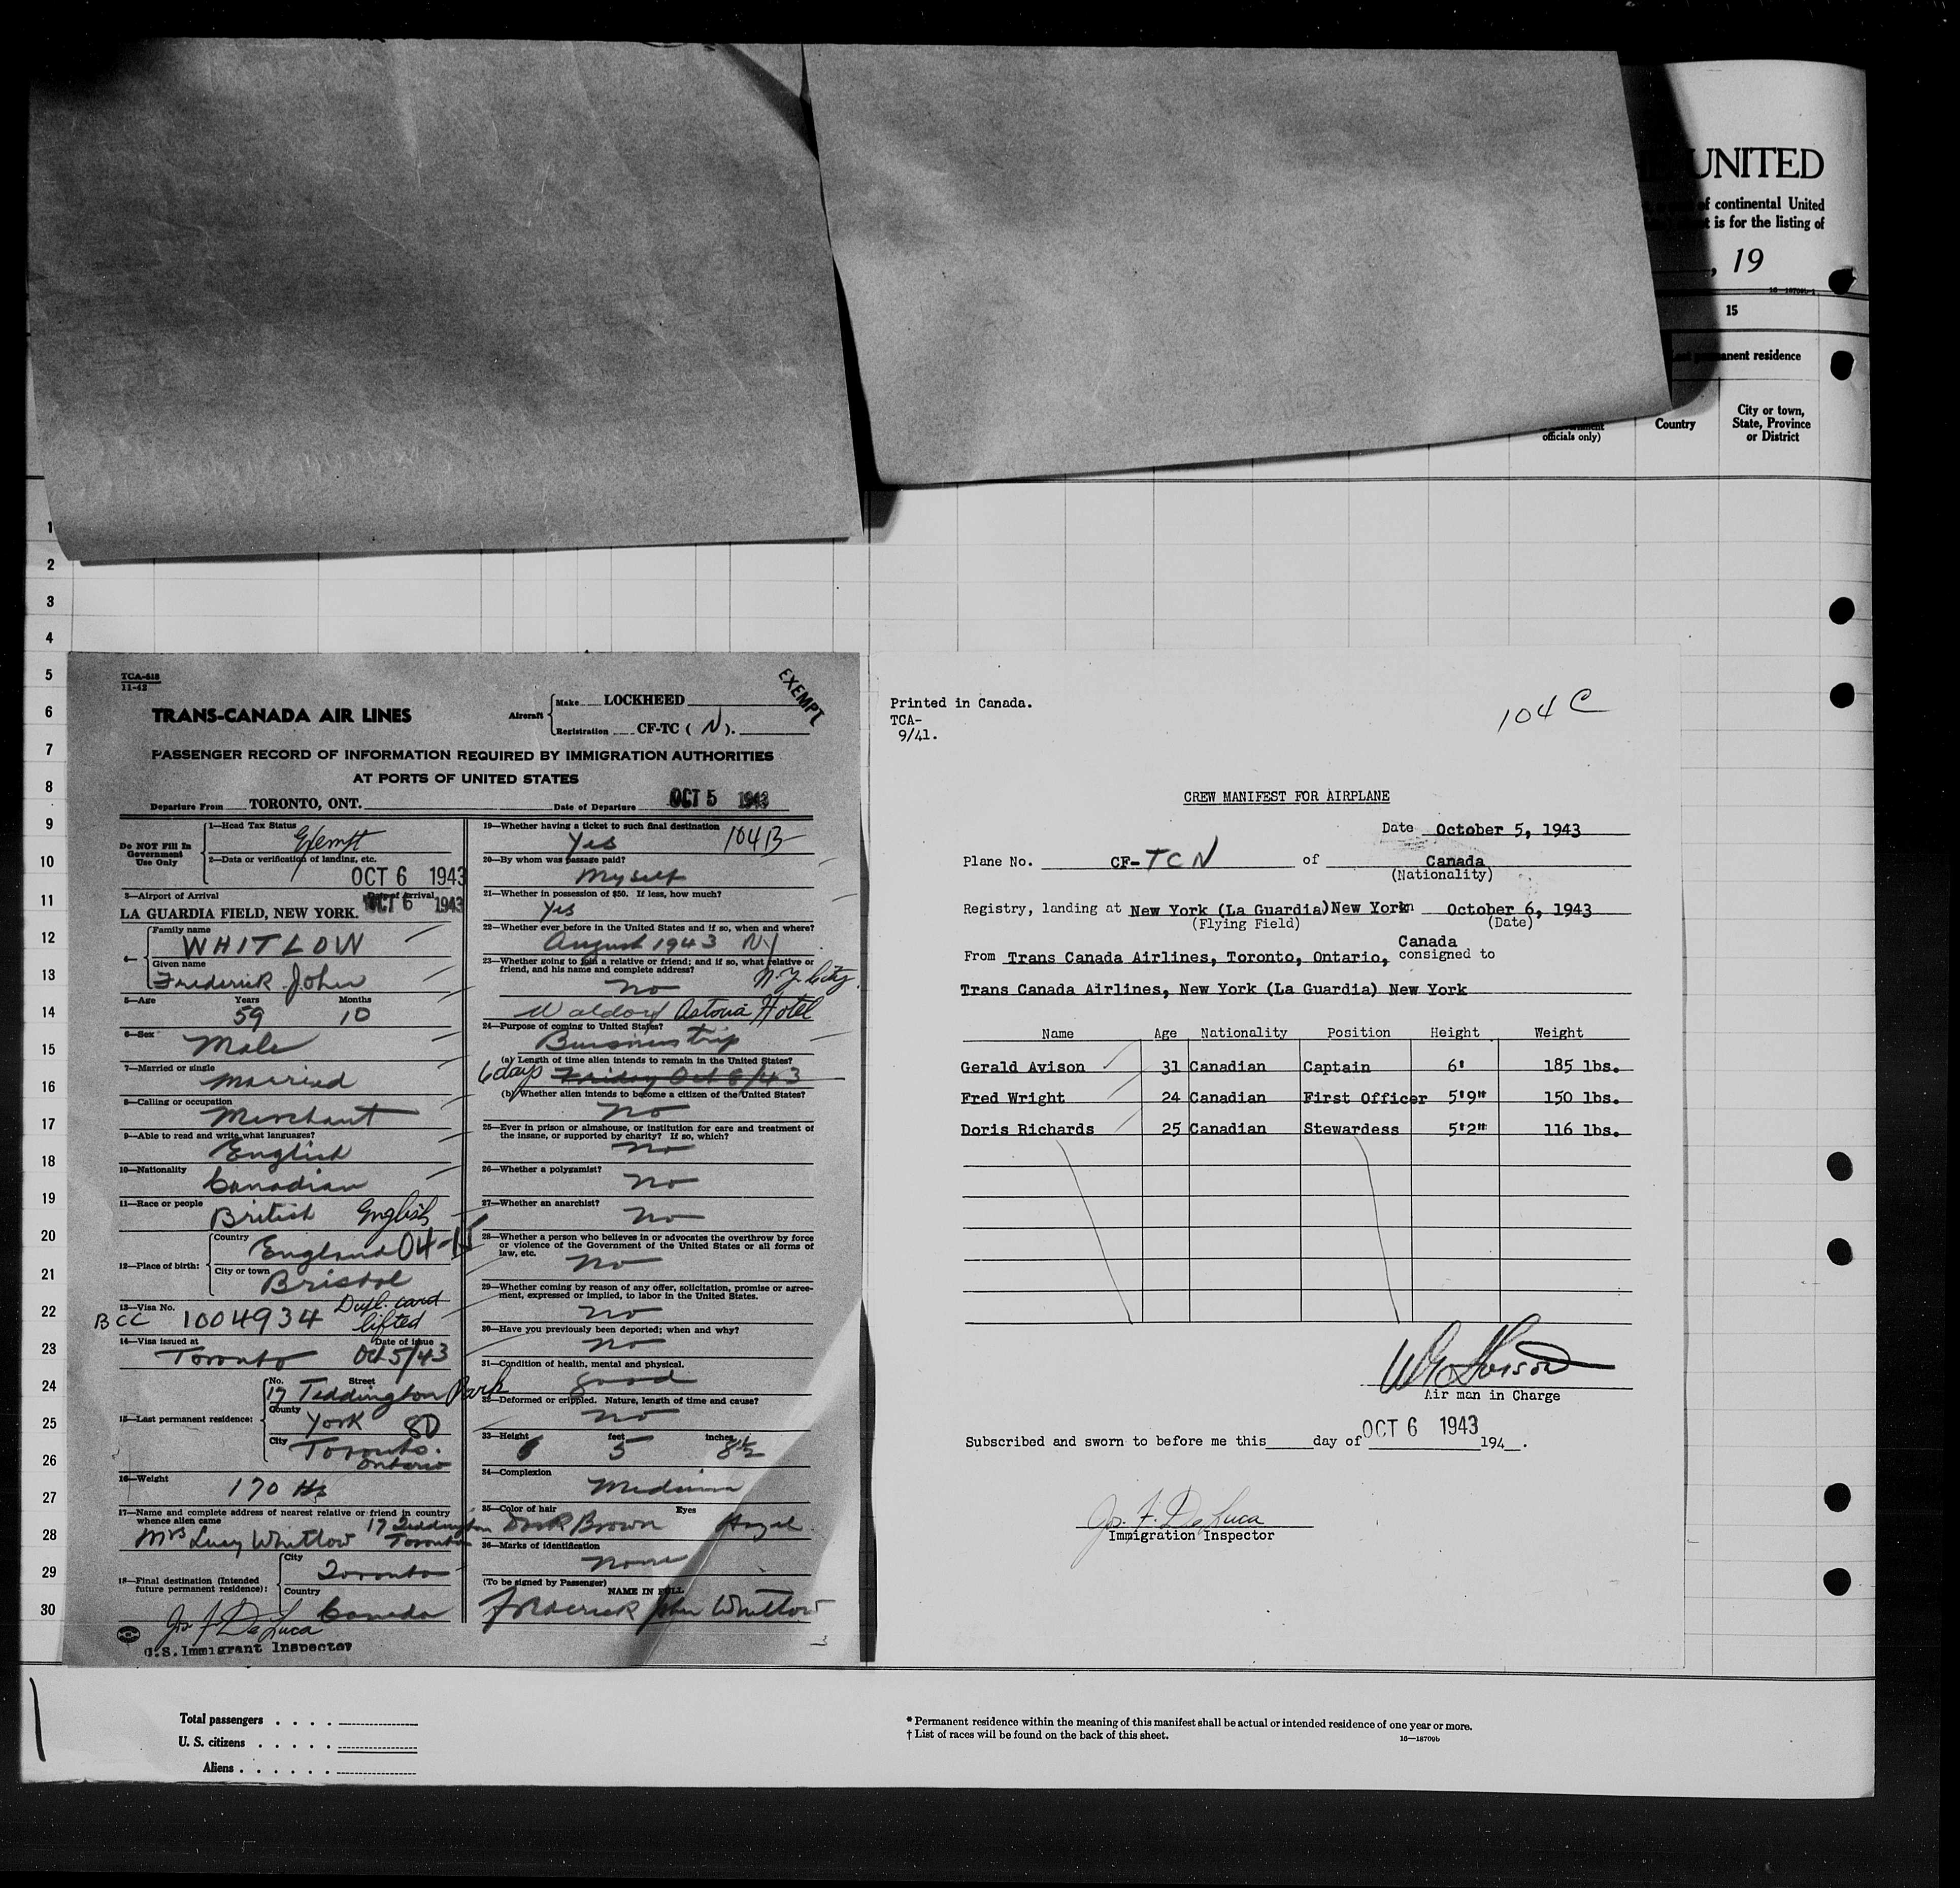 UNITED
of continental United
is for the listing of
, 19
15
permanent residence
officials only)
Country
City or town,
State, Province
or District
1
2
3
4
5
6
7
8
9
10
11
12
13
14
15
16
17
18
19
20
21
22
23
24
25
26
27
28
29
30
TCA-618
11-42
EXEMPT
TRANS-CANADA AIR LINES
Aircraft
Make LOCKHEED
Registration CF-TC ( N ).
PASSENGER RECORD OF INFORMATION REQUIRED BY IMMIGRATION AUTHORITIES
AT PORTS OF UNITED STATES
Departure From TORONTO, ONT. Date of Departure OCT 5 1943
Do NOT Fill In
Government
Use Only
1—Head Tax Status
Exempt
2—Data or verification of landing, etc.
OCT 6 1943
3—Airport of Arrival Date of Arrival
LA GUARDIA FIELD, NEW YORK. OCT 6 1943
4—
Family name
WHITLOW
Given name
Frederick John
5—Age Years Months
59 10
6—Sex
Male
7—Married or single
Married
8—Calling or occupation
Merchant
9—Able to read and write what languages?
English
10—Nationality
Canadian
11—Race or people
British English
12—Place of birth:
Country
England
City or town
Bristol
13—Visa No.
BCC 1004934 Dupl. card
lifted
14—Visa issued at Date of issue
Toronto Oct 5/43
15—Last permanent residence:
No. Street
17 Teddington Park
County
York 80
City
Toronto.
Ontario
16—Weight
170 lbs
17—Name and complete address of nearest relative or friend in country
whence alien came
Mrs Lucy Whitlow 17 Teddington
Toronto
18—Final destination (Intended
future permanent residence):
City
Toronto
Country
Canada
Jos F De Luca
U.S. Immigrant Inspector
19—Whether having a ticket to such final destination
Yes 104B
20—By whom was passage paid?
Myself
21—Whether in possession of $50. If less, how much?
Yes
22—Whether ever before in the United States and if so, when and where?
August 1943 NY
23—Whether going to join a relative or friend; and if so, what relative or
friend, and his name and complete address?
No N.Y. City
Waldorf Astoria Hotel
24—Purpose of coming to United States?
Business trip
(a) Length of time alien intends to remain in the United States?
6 days Friday Oct 8/43
(b) Whether alien intends to become a citizen of the United States?
No
25—Ever in prison or almshouse, or institution for care and treatment of
the insane, or supported by charity? If so, which?
No
26—Whether a polygamist?
No
27—Whether an anarchist?
No
28—Whether a person who believes in or advocates the overthrow by force
or violence of the Government of the United States or all forms of
law, etc.
No
29—Whether coming by reason of any offer, solicitation, promise or agree-
ment, expressed or implied, to labor in the United States.
No
30—Have you previously been deported; when and why?
No
31—Condition of health, mental and physical.
Good
32—Deformed or crippled. Nature, length of time and cause?
No
33—Height feet inches
5 8½
34—Complexion
Medium
35—Color of hair Eyes
Dark Brown Hazel
36—Marks of identification
None
(To be signed by Passenger) NAME IN FULL
Frederick John Whitlow
Printed in Canada.
TCA-
9/41.
104 C
CREW MANIFEST FOR AIRPLANE
Date October 5, 1943
Plane No. CF-TCN of Canada
(Nationality)
Registry, landing at New York (La Guardia) New York in October 6, 1943
(Flying Field) (Date)
From Trans Canada Airlines, Toronto, Ontario, Canada consigned to
Trans Canada Airlines, New York (La Guardia) New York
Name Age Nationality Position Height Weight
Gerald Avison 31 Canadian Captain 6' 185 lbs.
Fred Wright 24 Canadian First Officer 5'9" 150 lbs.
Doris Richards 25 Canadian Stewardess 5'2" 116 lbs.
Air man in Charge
Subscribed and sworn to before me this day of OCT 6 1943 194 .
Jos. F. De Luca
Immigration Inspector
Total passengers . . . .
U. S. citizens . . . . .
Aliens . . . . . .
* Permanent residence within the meaning of this manifest shall be actual or intended residence of one year or more.
† List of races will be found on the back of this sheet.
16—18709b